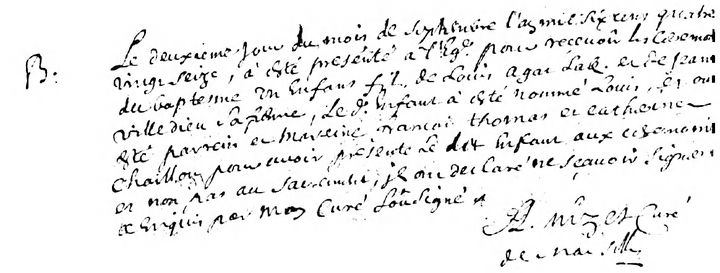 B:
Le deuxieme Jour du mois de septembre l'an mil six cens quatre
vingt seize, à esté presenté a l'Eg. pour recevoir les ceremo
du baptesme un Enfant fil. de Louis Agat Lab. et de Jean
Ville dieu sa feme, Le d. Enfant à esté nommé Louis, Et ont
esté parrein et Mareine francois thomas et catherine
Chaillou pour avoir presenté Le dit Enfant aux ceremoni
et non pas au sacrement, ils ont declaré ne sçavoir signer
Enquis par Moy Curé Sousigné
Curé
de